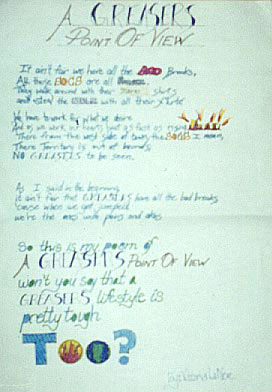 A GREASERS
POINT OF VIEW
It ain't fair we have all the BAD Breaks,
All those SOCS are all
They walk around with their shirts
and the with all their
We have to work for what we desire
And as we work our hearts burn as fast as rising
There from the west side of town, the SOCS I mean,
There Territory is out of bounds
NO GREASERS to be seen.
As I said in the beginning,
it ain't fair that GREASERS have all the bad breaks,
'cause when we get jumped
we're the ones with pains and aches.
So this is my poem of
A GREASERS POINT OF VIEW
won't you say that a
GREASERS lifestyle is
pretty tough
TOO?
By: